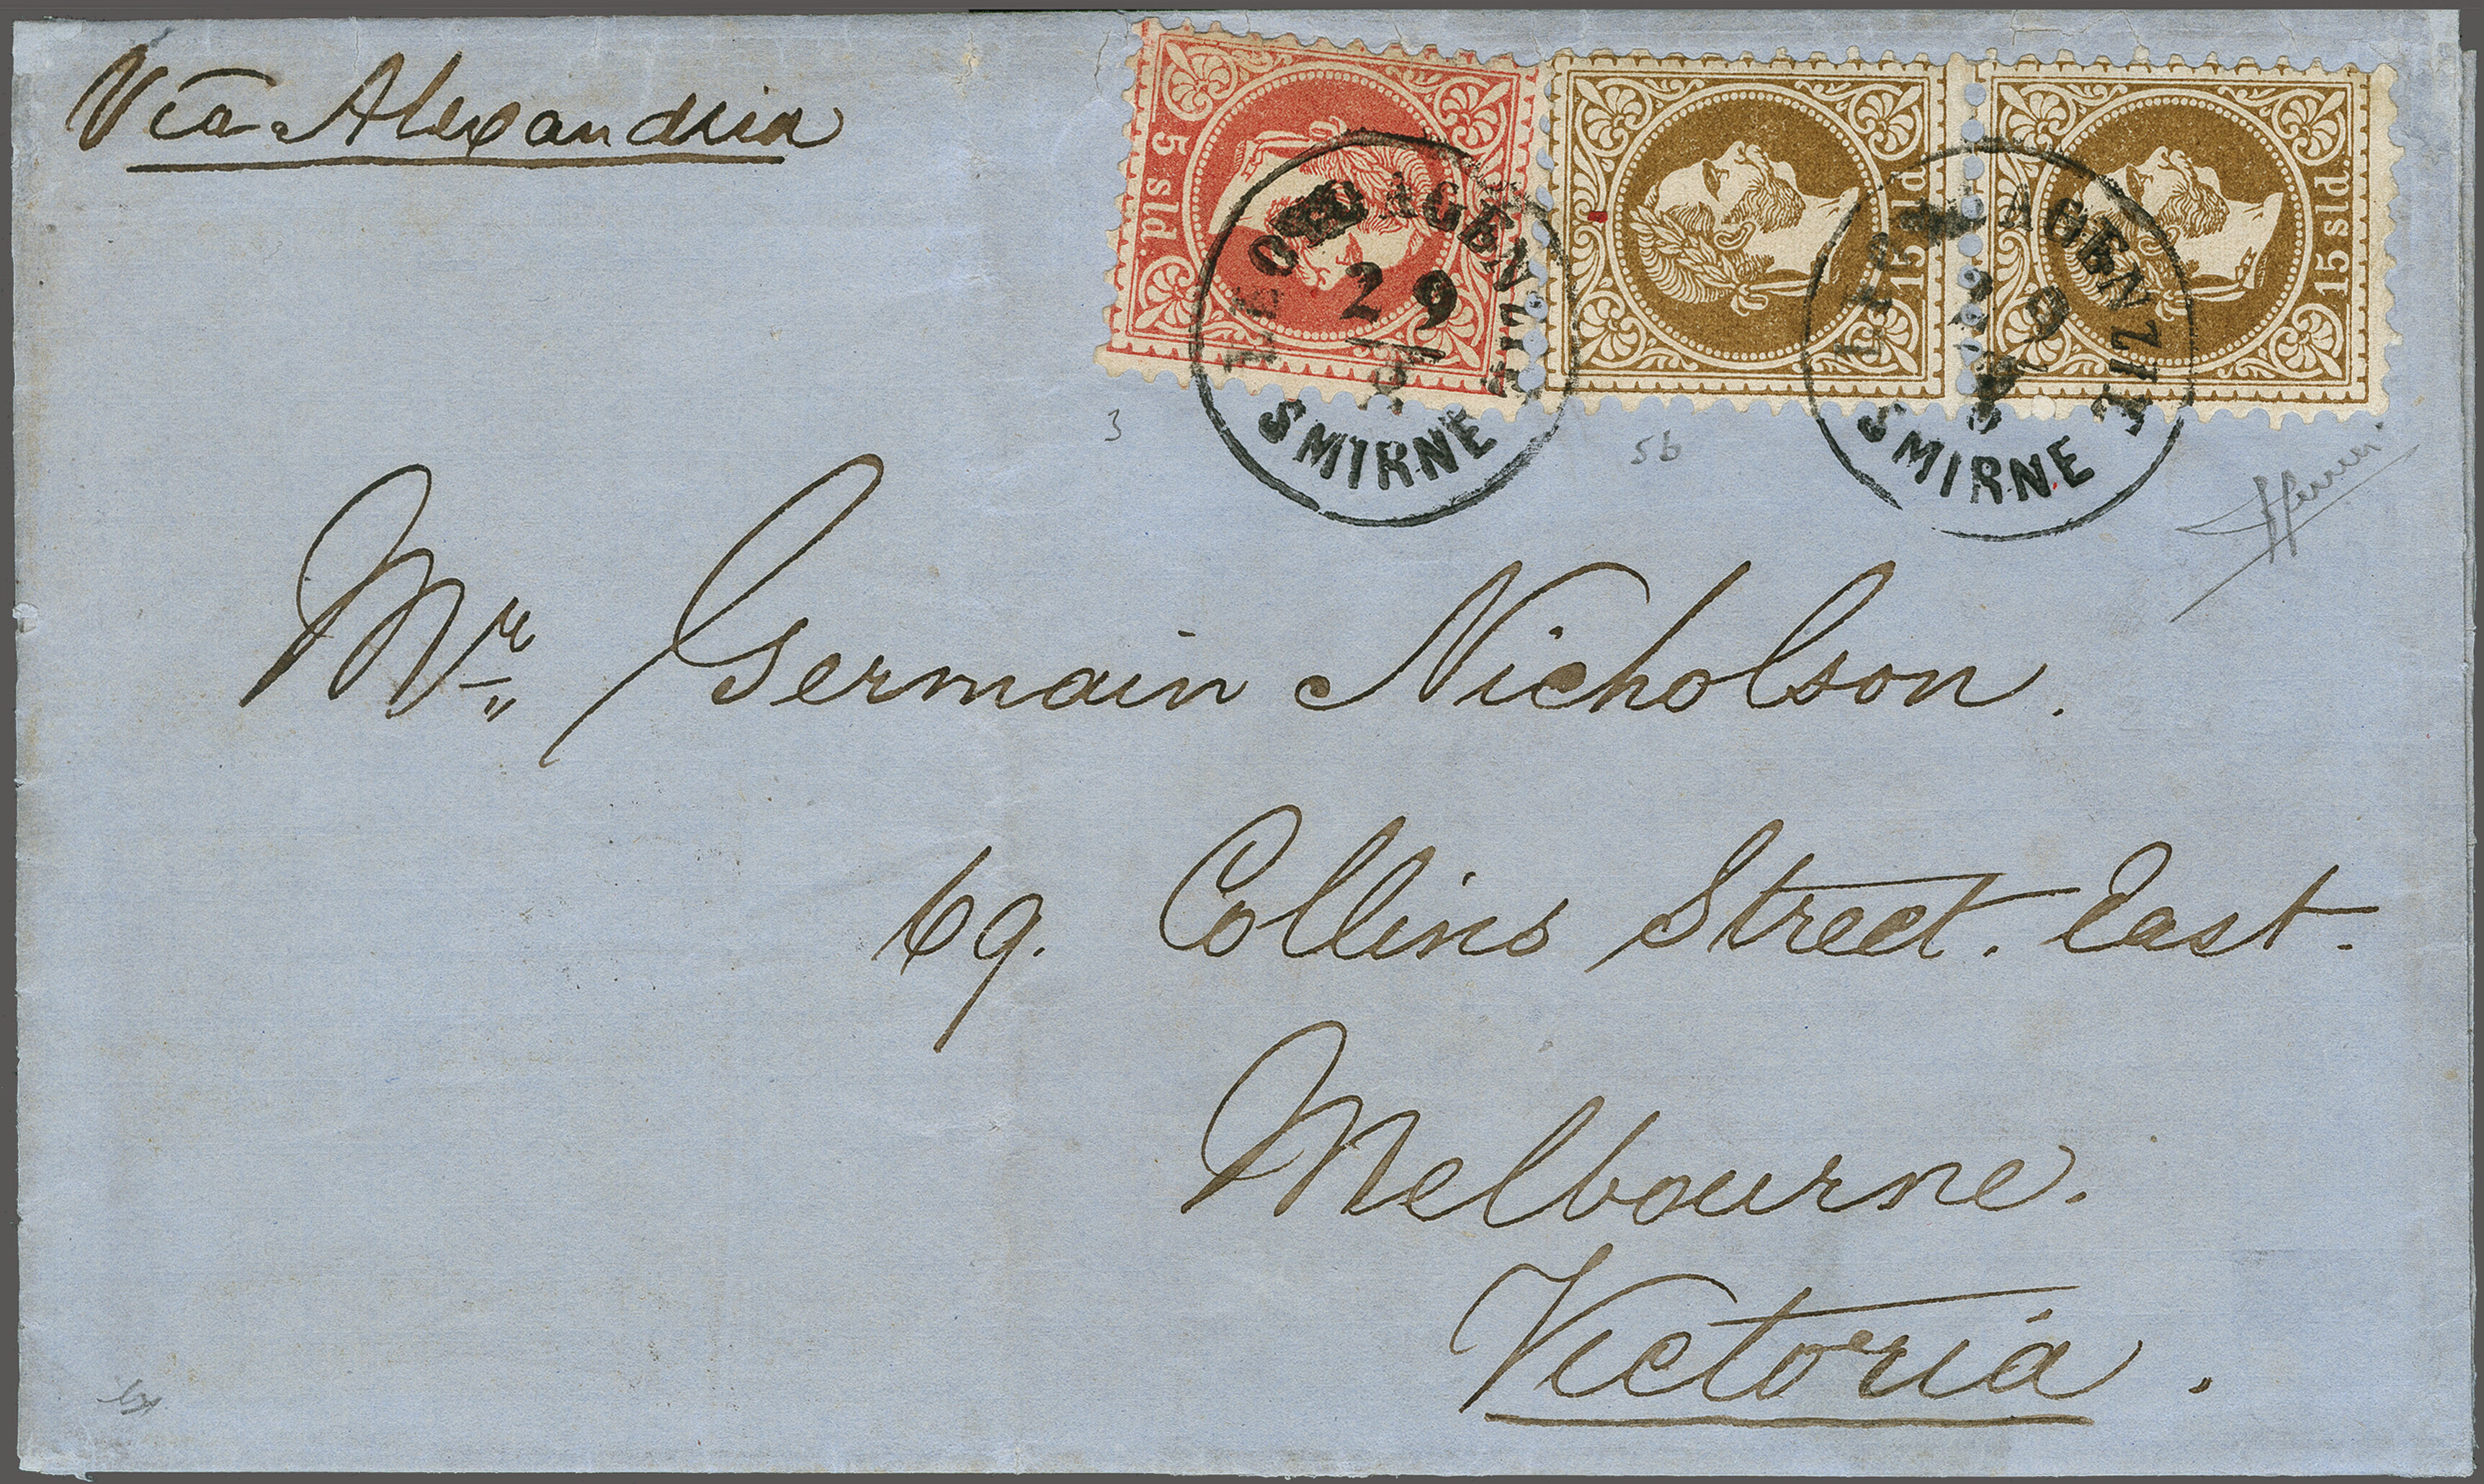 Via Alexandria
5 sld.
15 sld.
15 sld.
AGENZIE
29
SMIRNE
AGENZIE
29
SMIRNE
3
5b
Mr. Germain Nicholson.
69. Collins Street. East.
Melbourne.
Victoria.